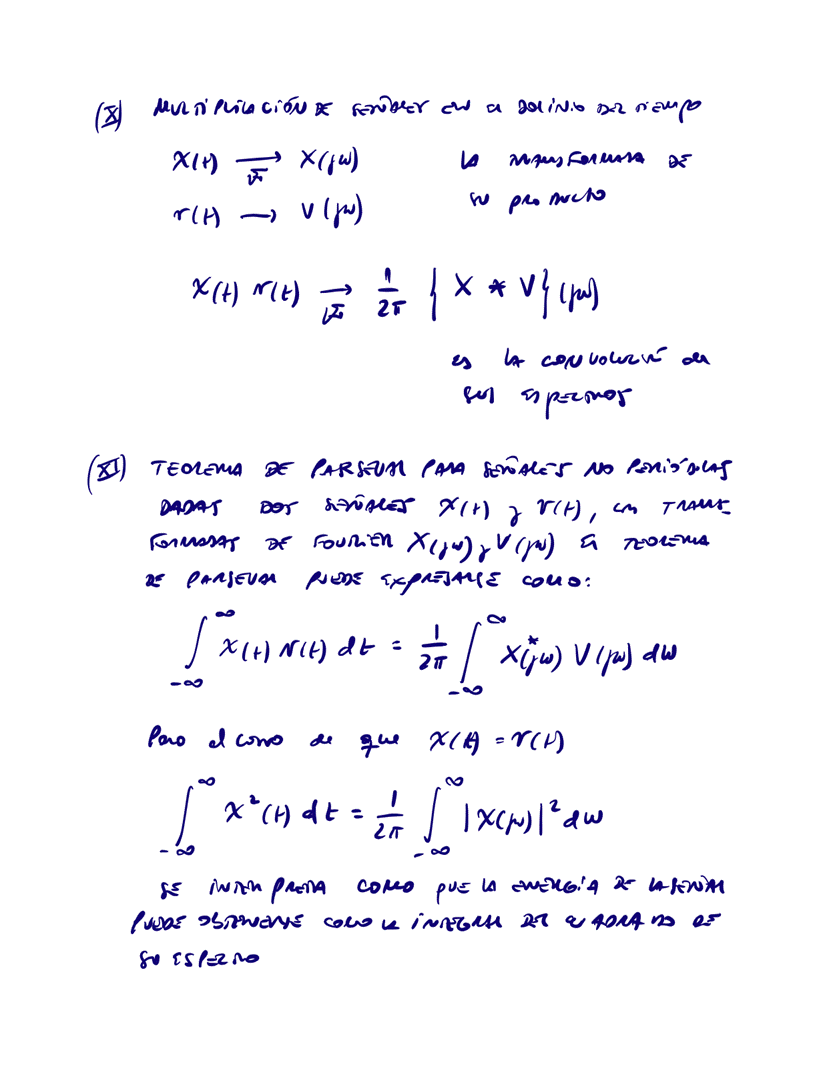 (X) MULTIPLICACIÓN DE SEÑALES EN EL DOMINIO DEL TIEMPO
x(t) →ℱ X(jω) LA TRANSFORMADA DE
v(t) → V(jω) SU PRODUCTO
x(t) v(t) →ℱ 1/2π { X * V } (jω)
ES LA CONVOLUCIÓN DE
SUS ESPECTROS
(XI) TEOREMA DE PARSEVAL PARA SEÑALES NO PERIÓDICAS
DADAS DOS SEÑALES x(t) y v(t), CON TRANS-
FORMADAS DE FOURIER X(jω) y V(jω) EL TEOREMA
DE PARSEVAL PUEDE EXPRESARSE COMO:
∫_{-∞}^{∞} x(t) v(t) dt = 1/2π ∫_{-∞}^{∞} X*(jω) V(jω) dω
Para el caso de que x(t) = v(t)
∫_{-∞}^{∞} x²(t) dt = 1/2π ∫_{-∞}^{∞} |X(jω)|² dω
SE INTERPRETA COMO QUE LA ENERGÍA DE LA SEÑAL
PUEDE OBTENERSE COMO LA INTEGRAL DEL CUADRADO DE
SU ESPECTRO